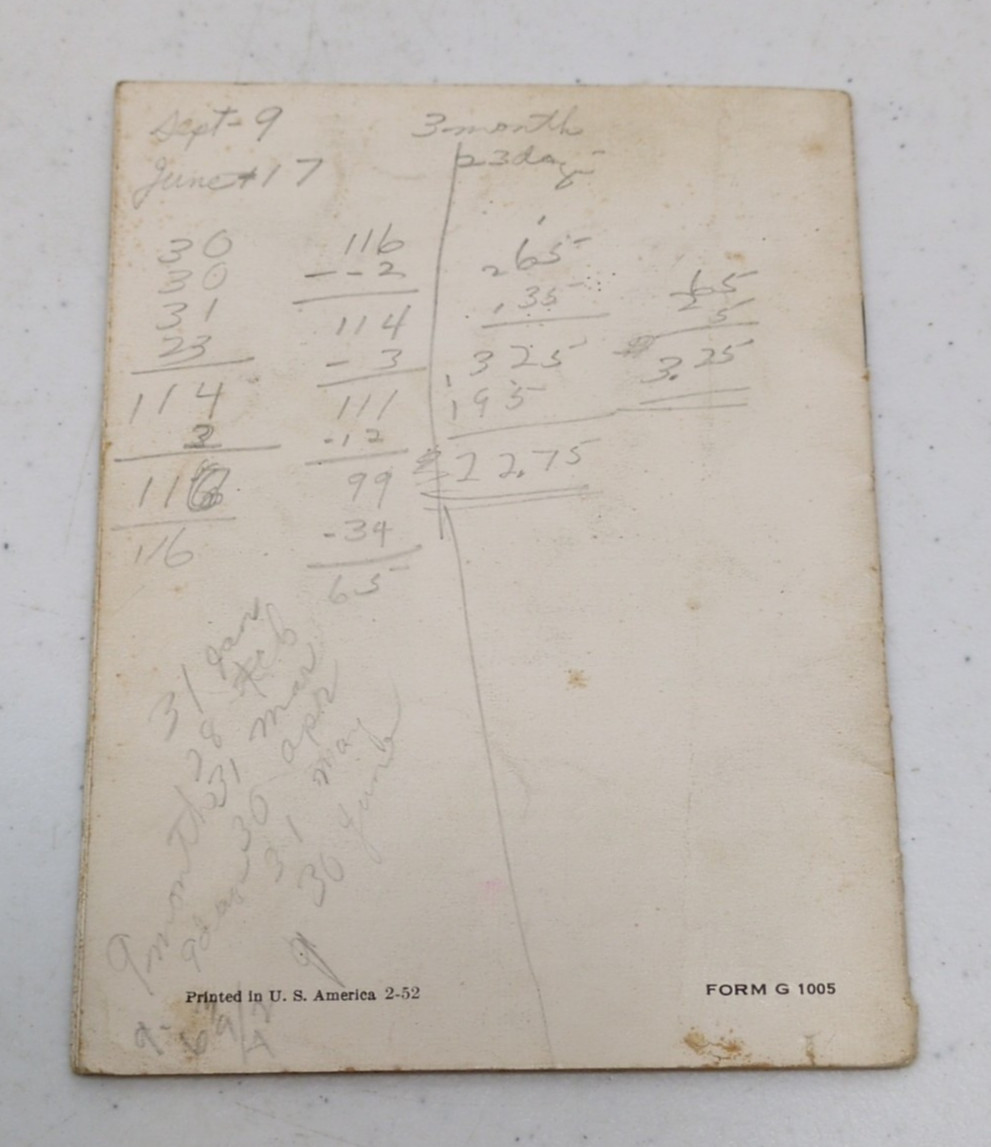 Sept - 9
June 17
30
30
31
23
114
2
116
116
116
- - 2
114
- 3
111
- 12
99
- 34
65
3 month
23 day
65
.35
325
195
22.75
65
5
3.25
31 Jan
28 Feb
31 Mar
30 apr
31 may
30 June
9
9 month
9 day
Printed in U. S. America 2-52
FORM G 1005